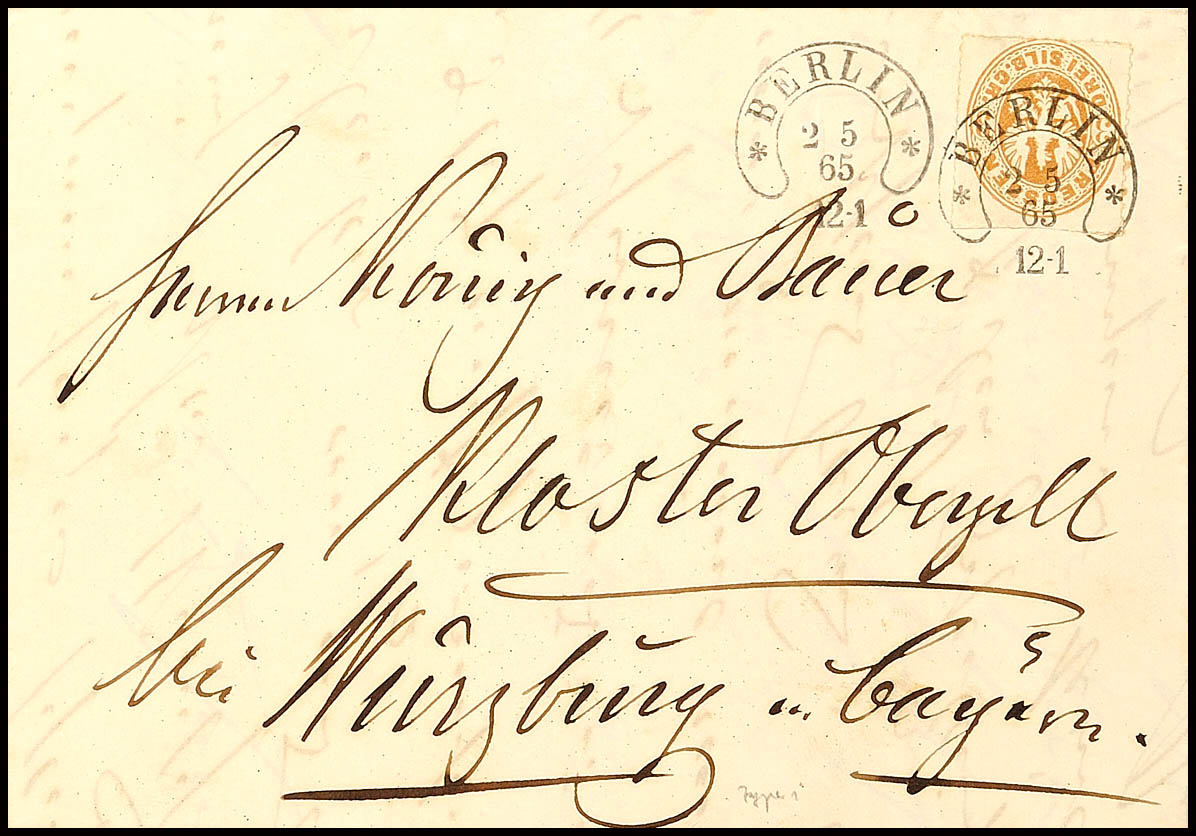 BERLIN
2 5
65
12-1
DREI SILB. GR.
PREUSSEN
BERLIN
2 5
65
12-1
Herren König und Bauer
Kloster Oberzell
bei Würzburg in Bayern.
Type I